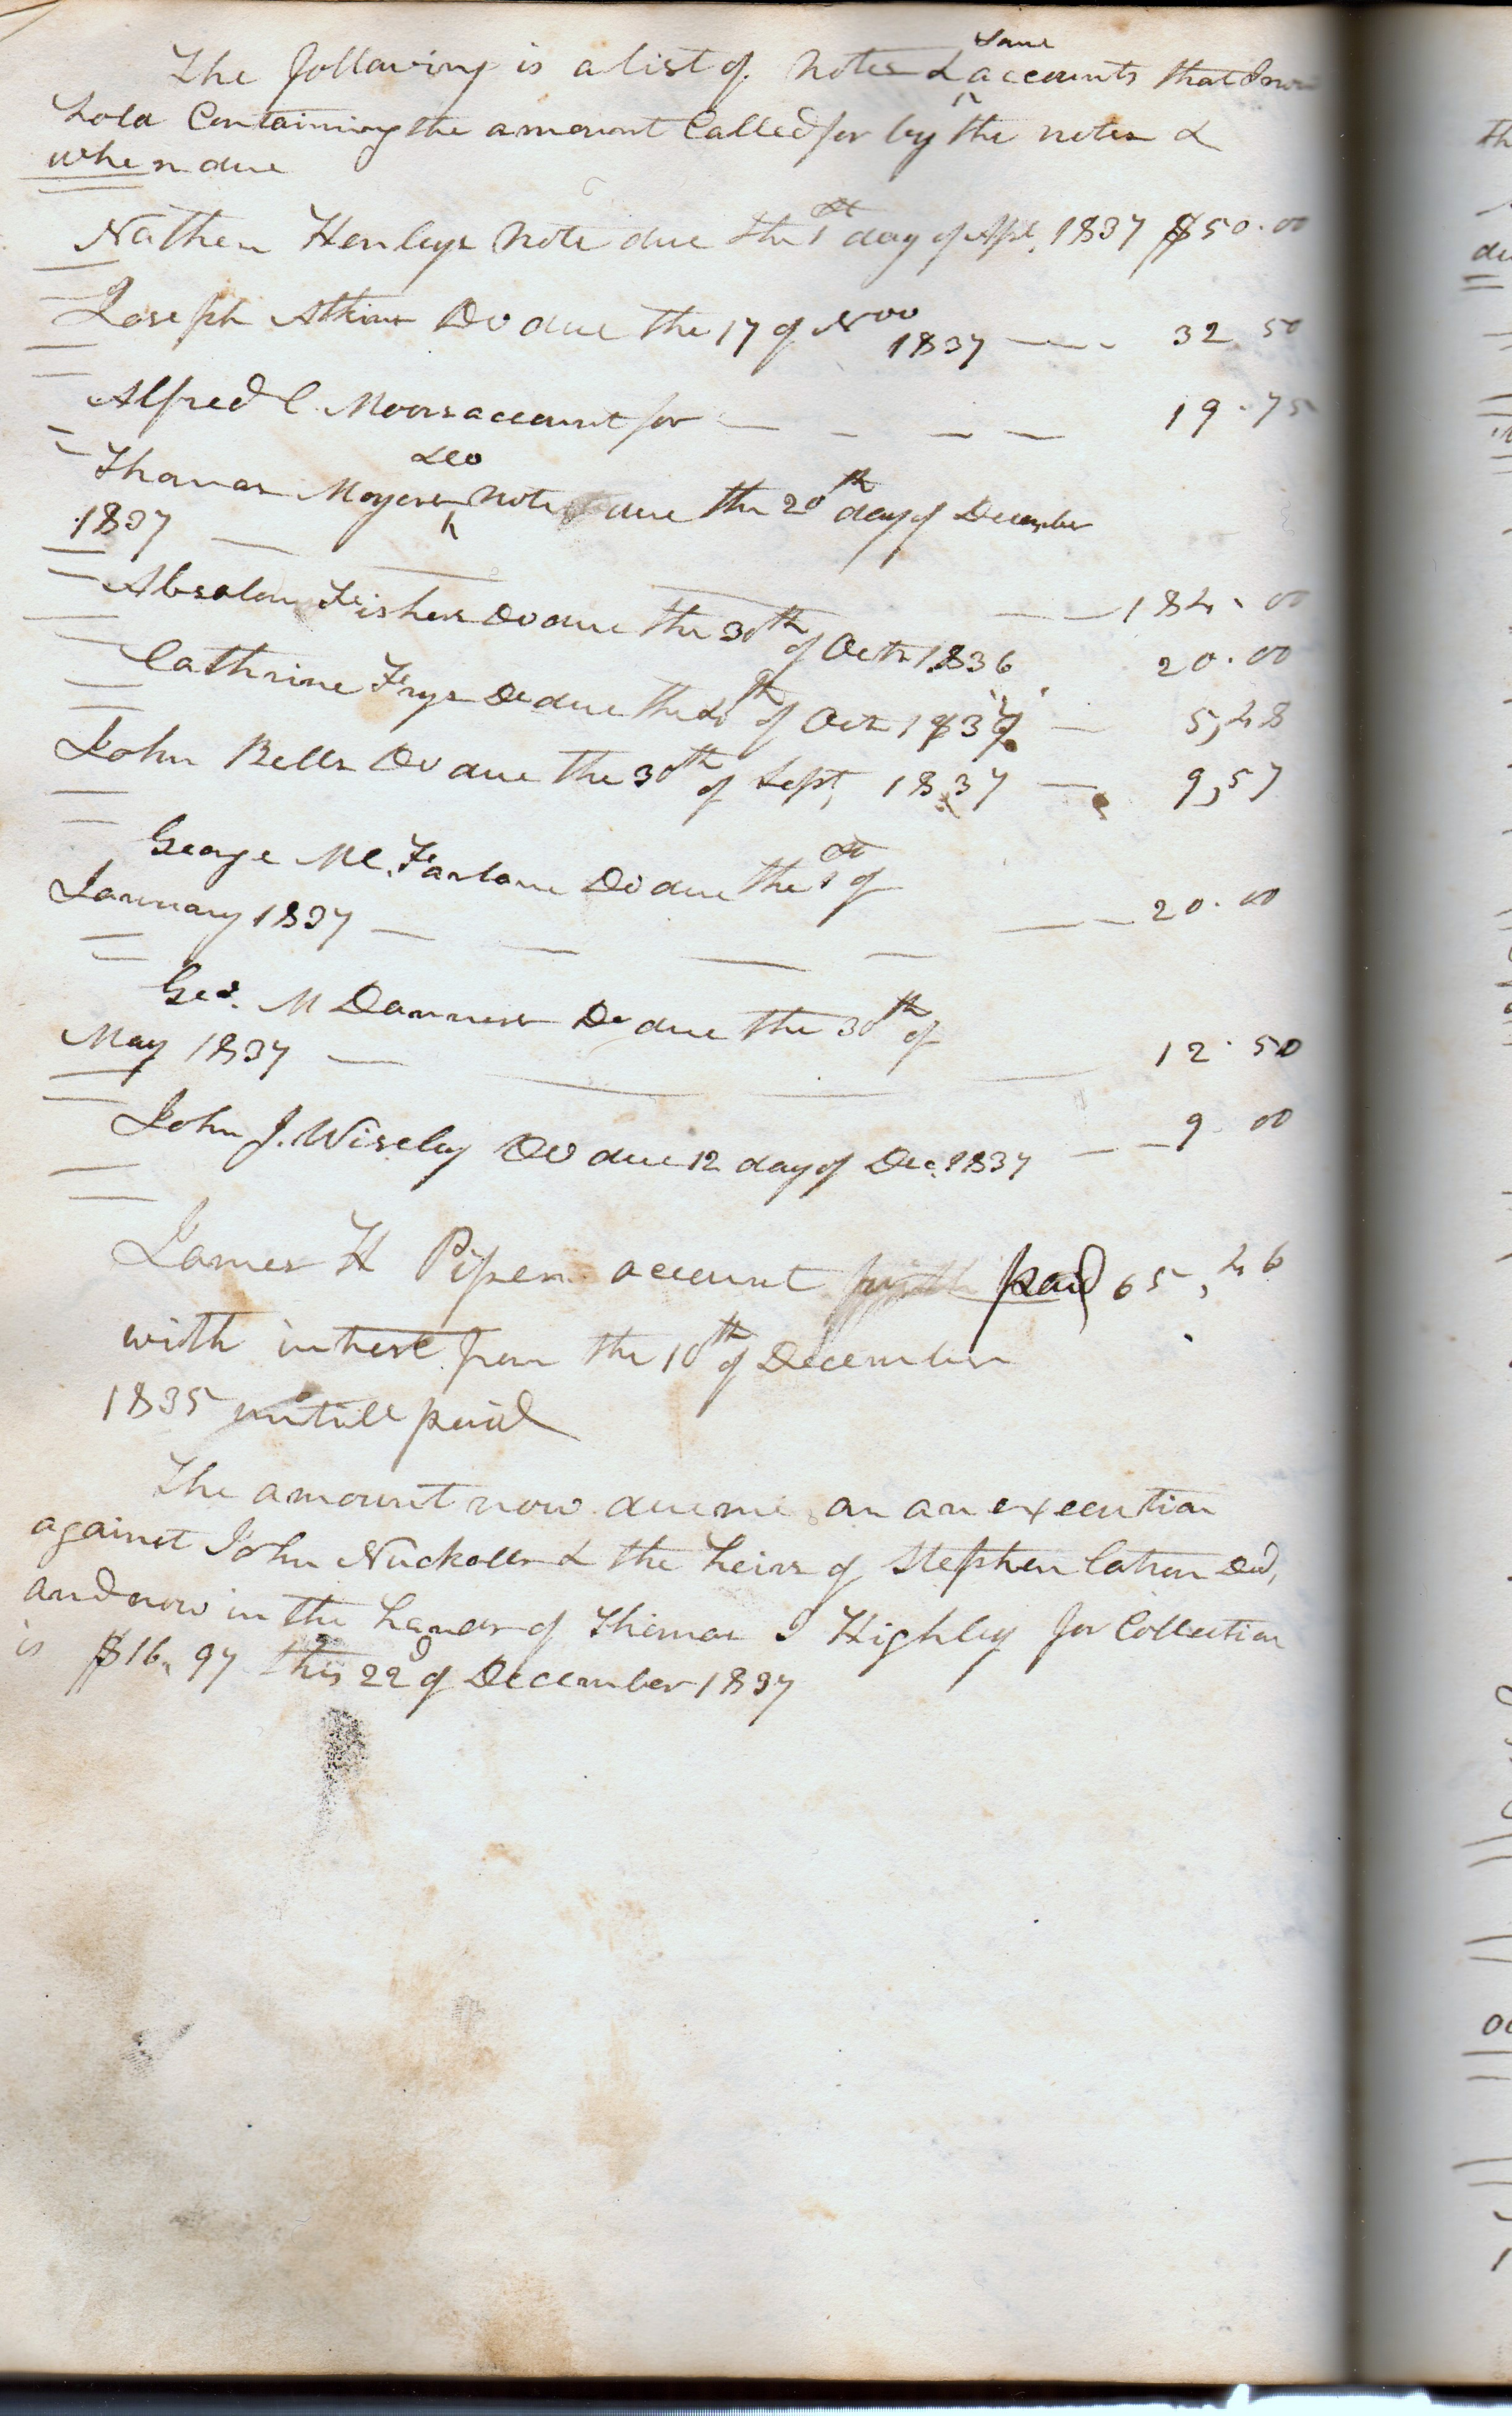 The following is a list of notes & some accounts that I now
hold Containing the amount Called for by the notes &
when due
Nathen Henleys note due the 1st day of Apl. 1837 $50.00
Joseph Atkins Do due the 17 of Nov 1837 — 32 50
Alfred C. Moors account for — — — — 19.75
Thomas Moyers note due the 20th day of December
1837 — 184.00
Absalom Fishers Do due the 30th of Octr 1836 20.00
Cathrine Frys Do due the of Octr — 5,48
John Bells Do due the 30th of Sept, 1837 — 9,57
George Mc.Farlane Do due the 1st of
January 1837 — — — — — 20.00
Geo. M Danners Do due the 30th of
May 1837 — 12.50
John J. Wiseley Do due 12 day of Dec. 1837 — — 9 00
James H Pipers account paid 65,46
with interest from the 10th of December
1835 untill paid
The amount now due me on an execution
against John Nuckolls & the heirs of Stephen Catron Decd,
and now in the hands of Thomas J Highley for Collection
is $16.97 this 22 of December 1837